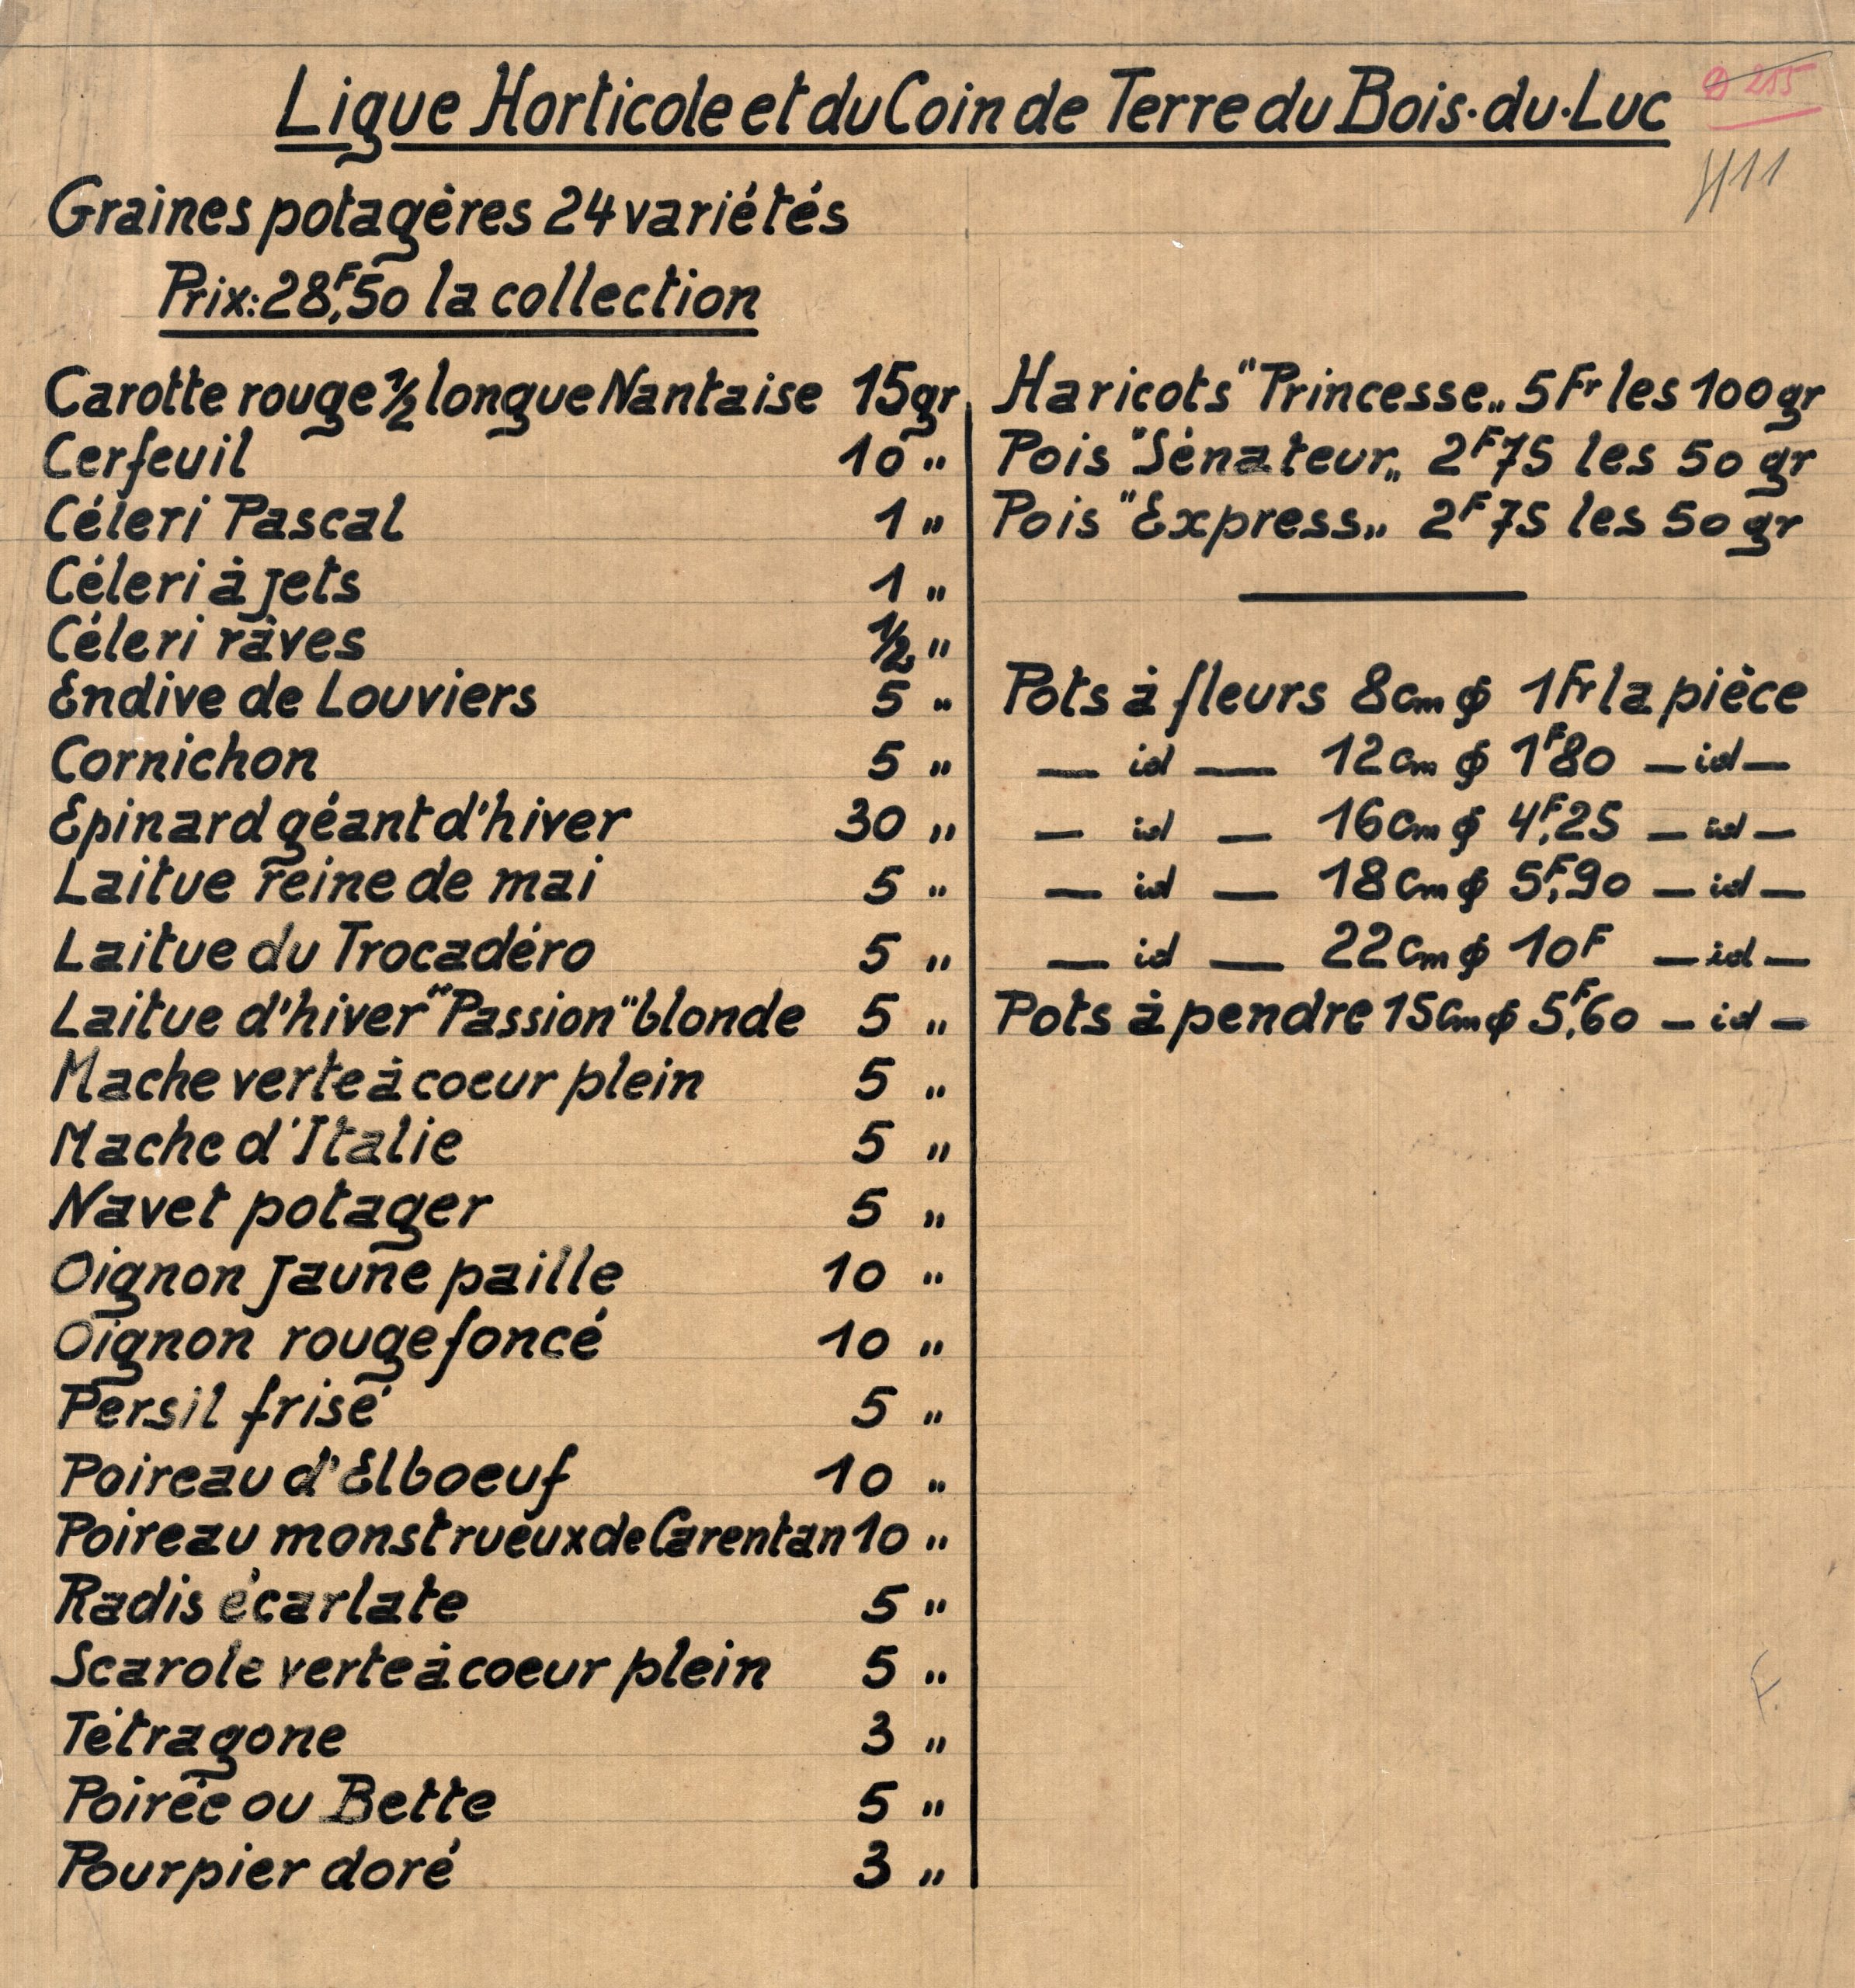 Ligue Horticole et du Coin de Terre du Bois·du·Luc
H11
Graines potagères 24 variétés
Prix: 28,F50 la collection
Carotte rouge ½ longue Nantaise 15 gr
Cerfeuil 10 "
Céleri Pascal 1 "
Céleri à jets 1 "
Céleri râves ½ "
Endive de Louviers 5 "
Cornichon 5 "
Epinard géant d'hiver 30 "
Laitue reine de mai 5 "
Laitue du Trocadéro 5 "
Laitue d'hiver "Passion" blonde 5 "
Mache verte à coeur plein 5 "
Mache d'Italie 5 "
Navet potager 5 "
Oignon jaune paille 10 "
Oignon rouge foncé 10 "
Persil frisé 5 "
Poireau d'Elboeuf 10 "
Poireau monstrueux de Carentan 10 "
Radis écarlate 5 "
Scarole verte à coeur plein 5 "
Tétragone 3 "
Poirée ou Bette 5 "
Pourpier doré 3 "
Haricots "Princesse„ 5Fr les 100 gr
Pois "Sénateur„ 2F75 les 50 gr
Pois "Express„ 2F75 les 50 gr
Pots à fleurs 8cm ϕ 1Fr la pièce
— id — 12cm ϕ 1F80 — id —
— id — 16cm ϕ 4,F25 — id —
— id — 18cm ϕ 5,F90 — id —
— id — 22cm ϕ 10F — id —
Pots à pendre 15cm ϕ 5,F60 — id —
F.